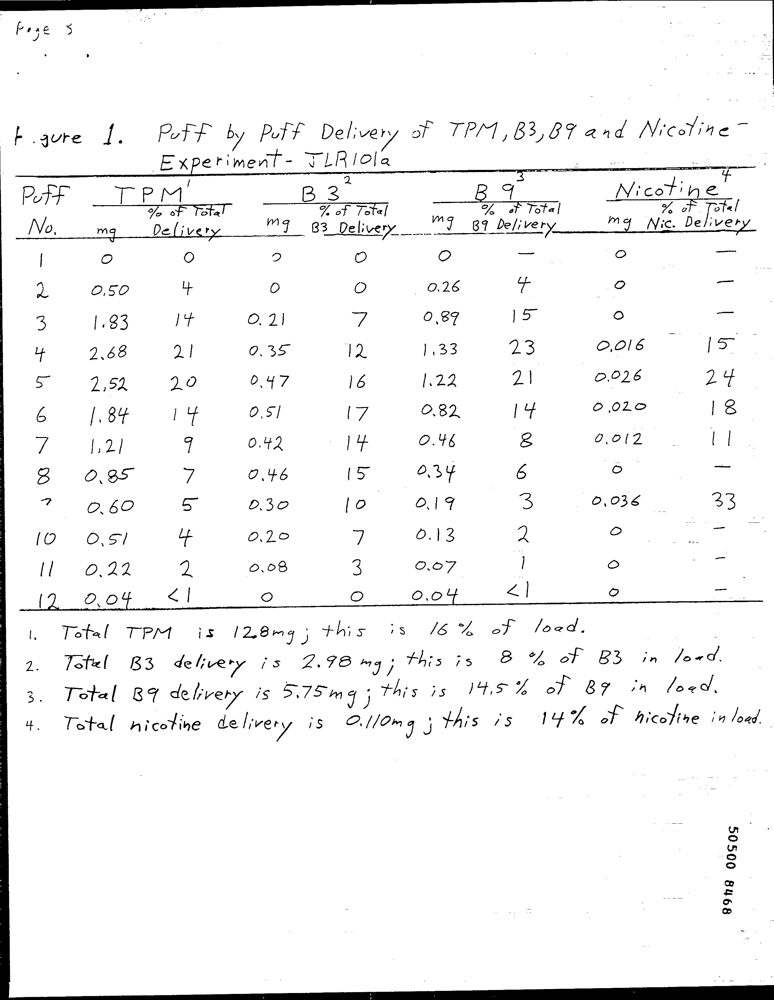 Page 5
Figure 1. Puff by Puff Delivery of TPM, B3, B9 and Nicotine -
Experiment - JLR101a
Puff TPM¹ B3² B9³ Nicotine⁴
% of Total % of Total % of Total % of Total
No. mg Delivery mg B3 Delivery mg B9 Delivery mg Nic. Delivery
1 0 0 0 0 0 — 0 —
2 0.50 4 0 0 0.26 4 0 —
3 1.83 14 0.21 7 0.89 15 0 —
4 2.68 21 0.35 12 1.33 23 0.016 15
5 2.52 20 0.47 16 1.22 21 0.026 24
6 1.84 14 0.51 17 0.82 14 0.020 18
7 1.21 9 0.42 14 0.46 8 0.012 11
8 0.85 7 0.46 15 0.34 6 0 —
9 0.60 5 0.30 10 0.19 3 0.036 33
10 0.51 4 0.20 7 0.13 2 0 —
11 0.22 2 0.08 3 0.07 1 0 —
12 0.04 <1 0 0 0.04 <1 0 —
1. Total TPM is 12.8mg; this is 16% of load.
2. Total B3 delivery is 2.98 mg; this is 8% of B3 in load.
3. Total B9 delivery is 5.75mg; this is 14.5% of B9 in load.
4. Total nicotine delivery is 0.110mg; this is 14% of nicotine in load.
50500 8468